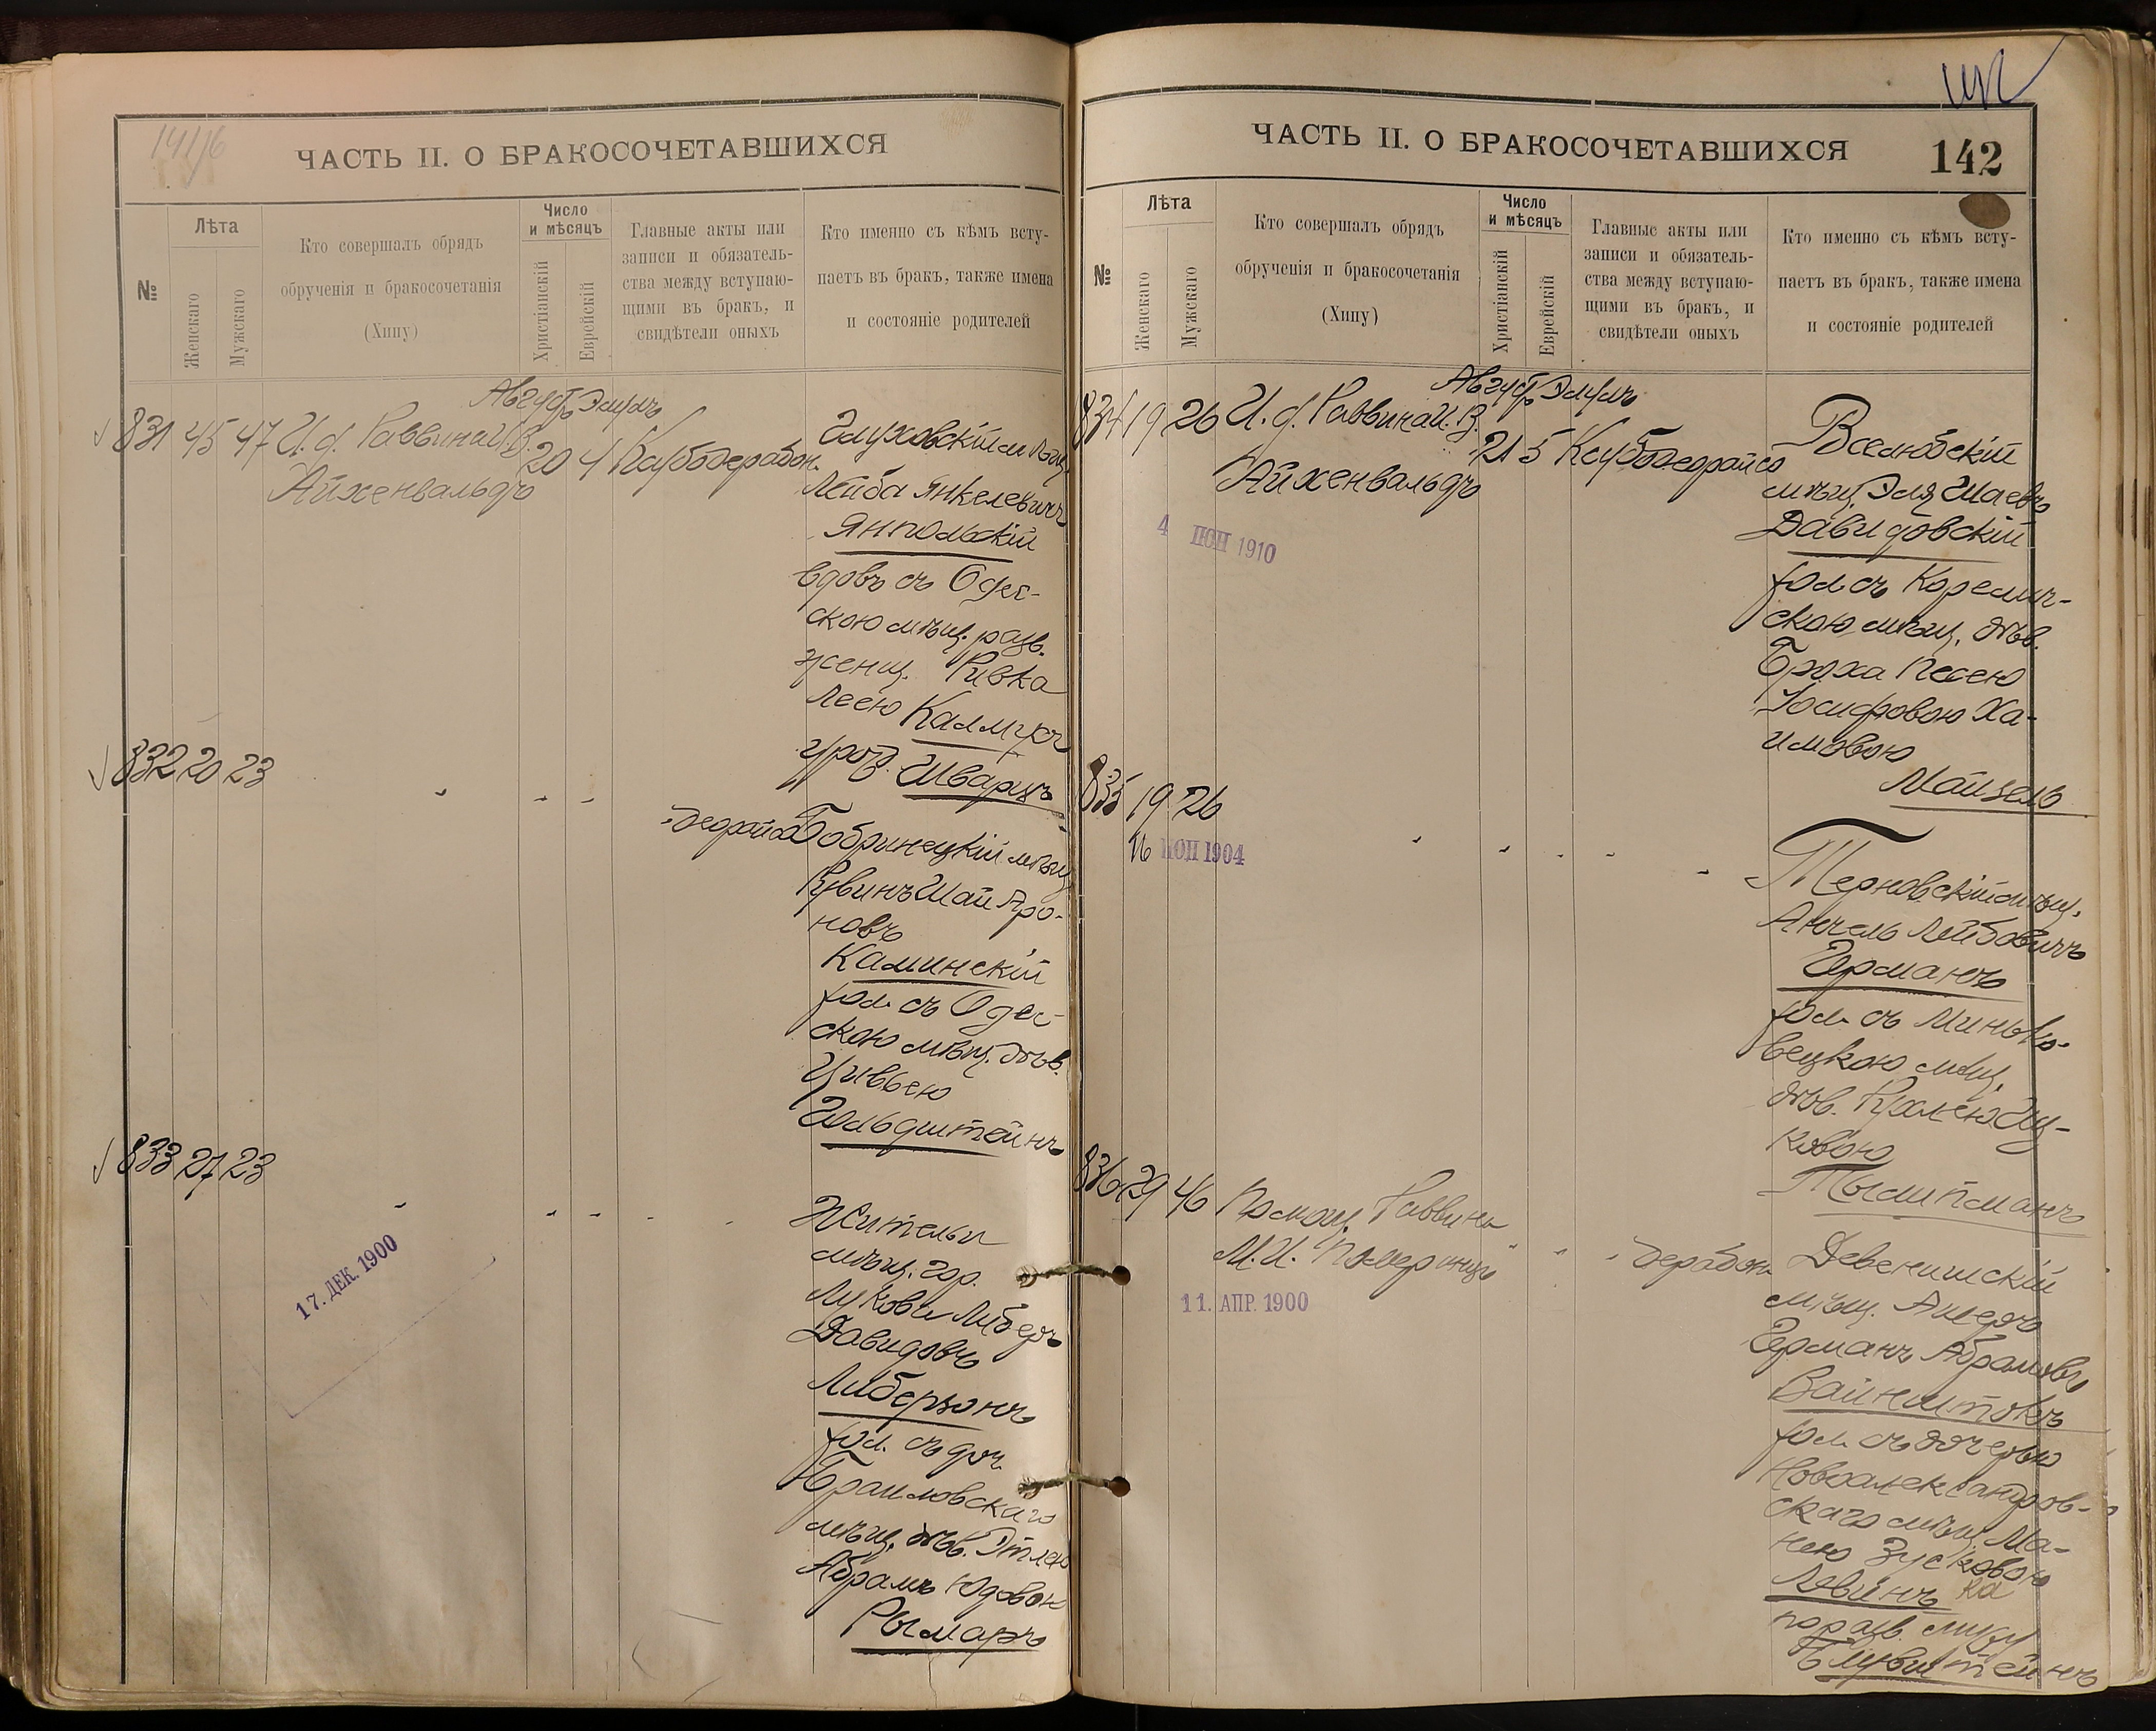 ЧАСТЬ II. О БРАКОСОЧЕТАВШИХСЯ
№
Лѣта
Женскаго
Мужскаго
Кто совершалъ обрядъ
обрученія и бракосочетанія
(Хипу)
Число
и мѣсяцъ
Христіанскій
Еврейскій
Главные акты или
записи и обязатель-
ства между вступаю-
щими въ бракъ, и
свидѣтели оныхъ
Кто именно съ кѣмъ всту-
паетъ въ бракъ, также имена
и состояніе родителей
Август Элулъ
831 45 47 И. д. Раввина И. В. 20 4
Айхенвальдъ
Глуховскій мѣщ.
Лейба Янкелевичъ
Янпольскій
вдовъ съ Одес-
скою мѣщ. разв.
женщ. Ривка
Леею Калмукъ
урож. Шварцъ
832 20 23
Бобринецкій мѣщ.
Рувинъ Шай Аро-
новъ
Каминскій
хол. съ Одес-
скою мѣщ. дѣв.
Цивьею
Гольдштейнъ
833 27 23
17. ДЕК. 1900
Жители
мѣщ. гор.
Лукова Либеръ
Давидовъ
Либерзонъ
хол. съ доч.
Браиловскаго
мѣщ. дѣв. Этлею
Абрамъ Юдовою
Рымаръ
ЧАСТЬ II. О БРАКОСОЧЕТАВШИХСЯ
142
№
Лѣта
Женскаго
Мужскаго
Кто совершалъ обрядъ
обрученія и бракосочетанія
(Хипу)
Число
и мѣсяцъ
Христіанскій
Еврейскій
Главные акты или
записи и обязатель-
ства между вступаю-
щими въ бракъ, и
свидѣтели оныхъ
Кто именно съ кѣмъ всту-
паетъ въ бракъ, также имена
и состояніе родителей
Август Элулъ
834 19 26 И. д. Раввина И. В. 21 5
Айхенвальдъ
1910
Вселюбскій
мѣщ. Эля Шаевъ
Давидовскій
хол. съ Корелич-
скою мѣщ. дѣв.
Броха Песею
Іосифовою Ха-
имовою
Майзель
835 19 26
16 1904
Терновскій мѣщ.
Анчель Лейбовичъ
Германъ
хол. съ Минько-
вецкою мѣщ.
дѣв. Иц-
ковою
836 29 46 Помощ. Раввина
М. И. Померанцъ
11. АПР. 1900
Девенишскій
мѣщ. Ашеръ
Германъ Абрамовъ
Вайнштокъ
хол. съ дочерью
Новоалександров-
скаго мѣщ. Ма-
нею Зусковою
Левинъ
по разв.